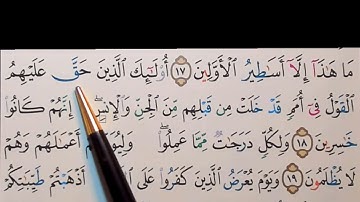 مَا هَٰذَآ إِلَّآ أَسَٰطِيرُ ٱلْأَوَّلِينَ ١٧ أُو۟لَٰٓئِكَ ٱلَّذِينَ حَقَّ عَلَيْهِمُ
ٱلْقَوْلُ فِىٓ أُمَمٍ قَدْ خَلَتْ مِن قَبْلِهِم مِّنَ ٱلْجِنِّ وَٱلْإِنسِ ۖ إِنَّهُمْ كَانُوا۟
خَٰسِرِينَ ١٨ وَلِكُلٍّ دَرَجَٰتٌ مِّمَّا عَمِلُوا۟ ۖ وَلِيُوَفِّيَهُمْ أَعْمَٰلَهُمْ وَهُمْ
لَا يُظْلَمُونَ ١٩ وَيَوْمَ يُعْرَضُ ٱلَّذِينَ كَفَرُوا۟ عَلَى ٱلنَّارِ أَذْهَبْتُمْ طَيِّبَٰتِكُمْ